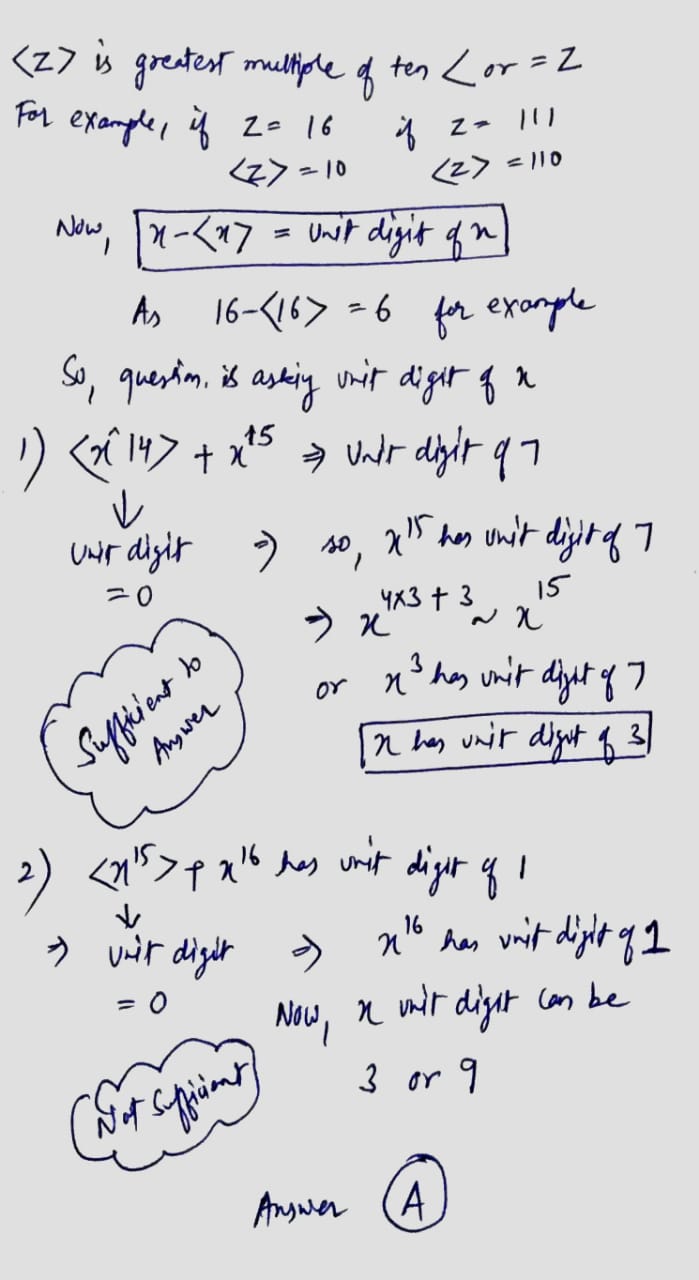 <Z> is greatest multiple of ten < or = Z
For example, if Z = 16 if Z = 111
<Z> = 10 <Z> = 110
Now, x-<x> = Unit digit of x
As 16-<16> = 6 for example
So, question is asking unit digit of x
1) <x^14> + x^15 ⇒ Unit digit of 7
↓
Unit digit ⇒ so, x^15 has unit digit of 7
= 0
⇒ x^4×3+3 ~ x^15
or x^3 has unit digit of 7
Sufficient to
Answer
x has unit digit of 3
2) <x^15> + x^16 has unit digit of 1
↓
⇒ Unit digit ⇒ x^16 has unit digit of 1
= 0
Now, x unit digit can be
3 or 9
Not Sufficient
Answer A